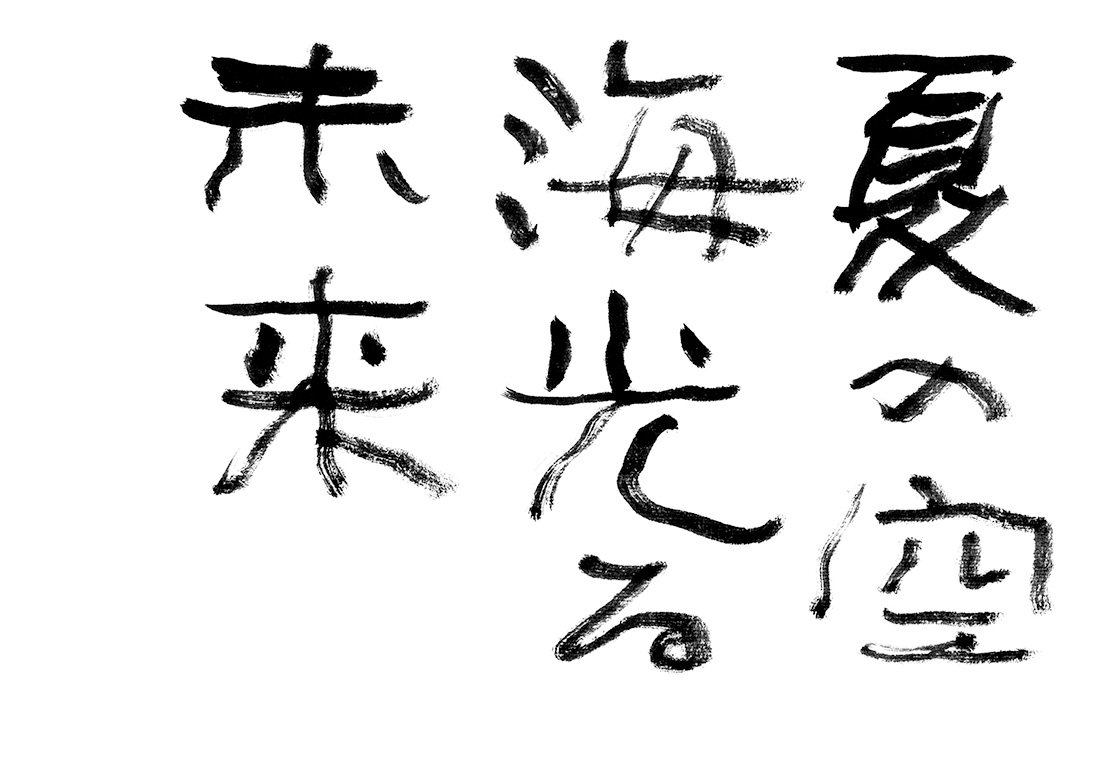 夏の空
海光る
未来